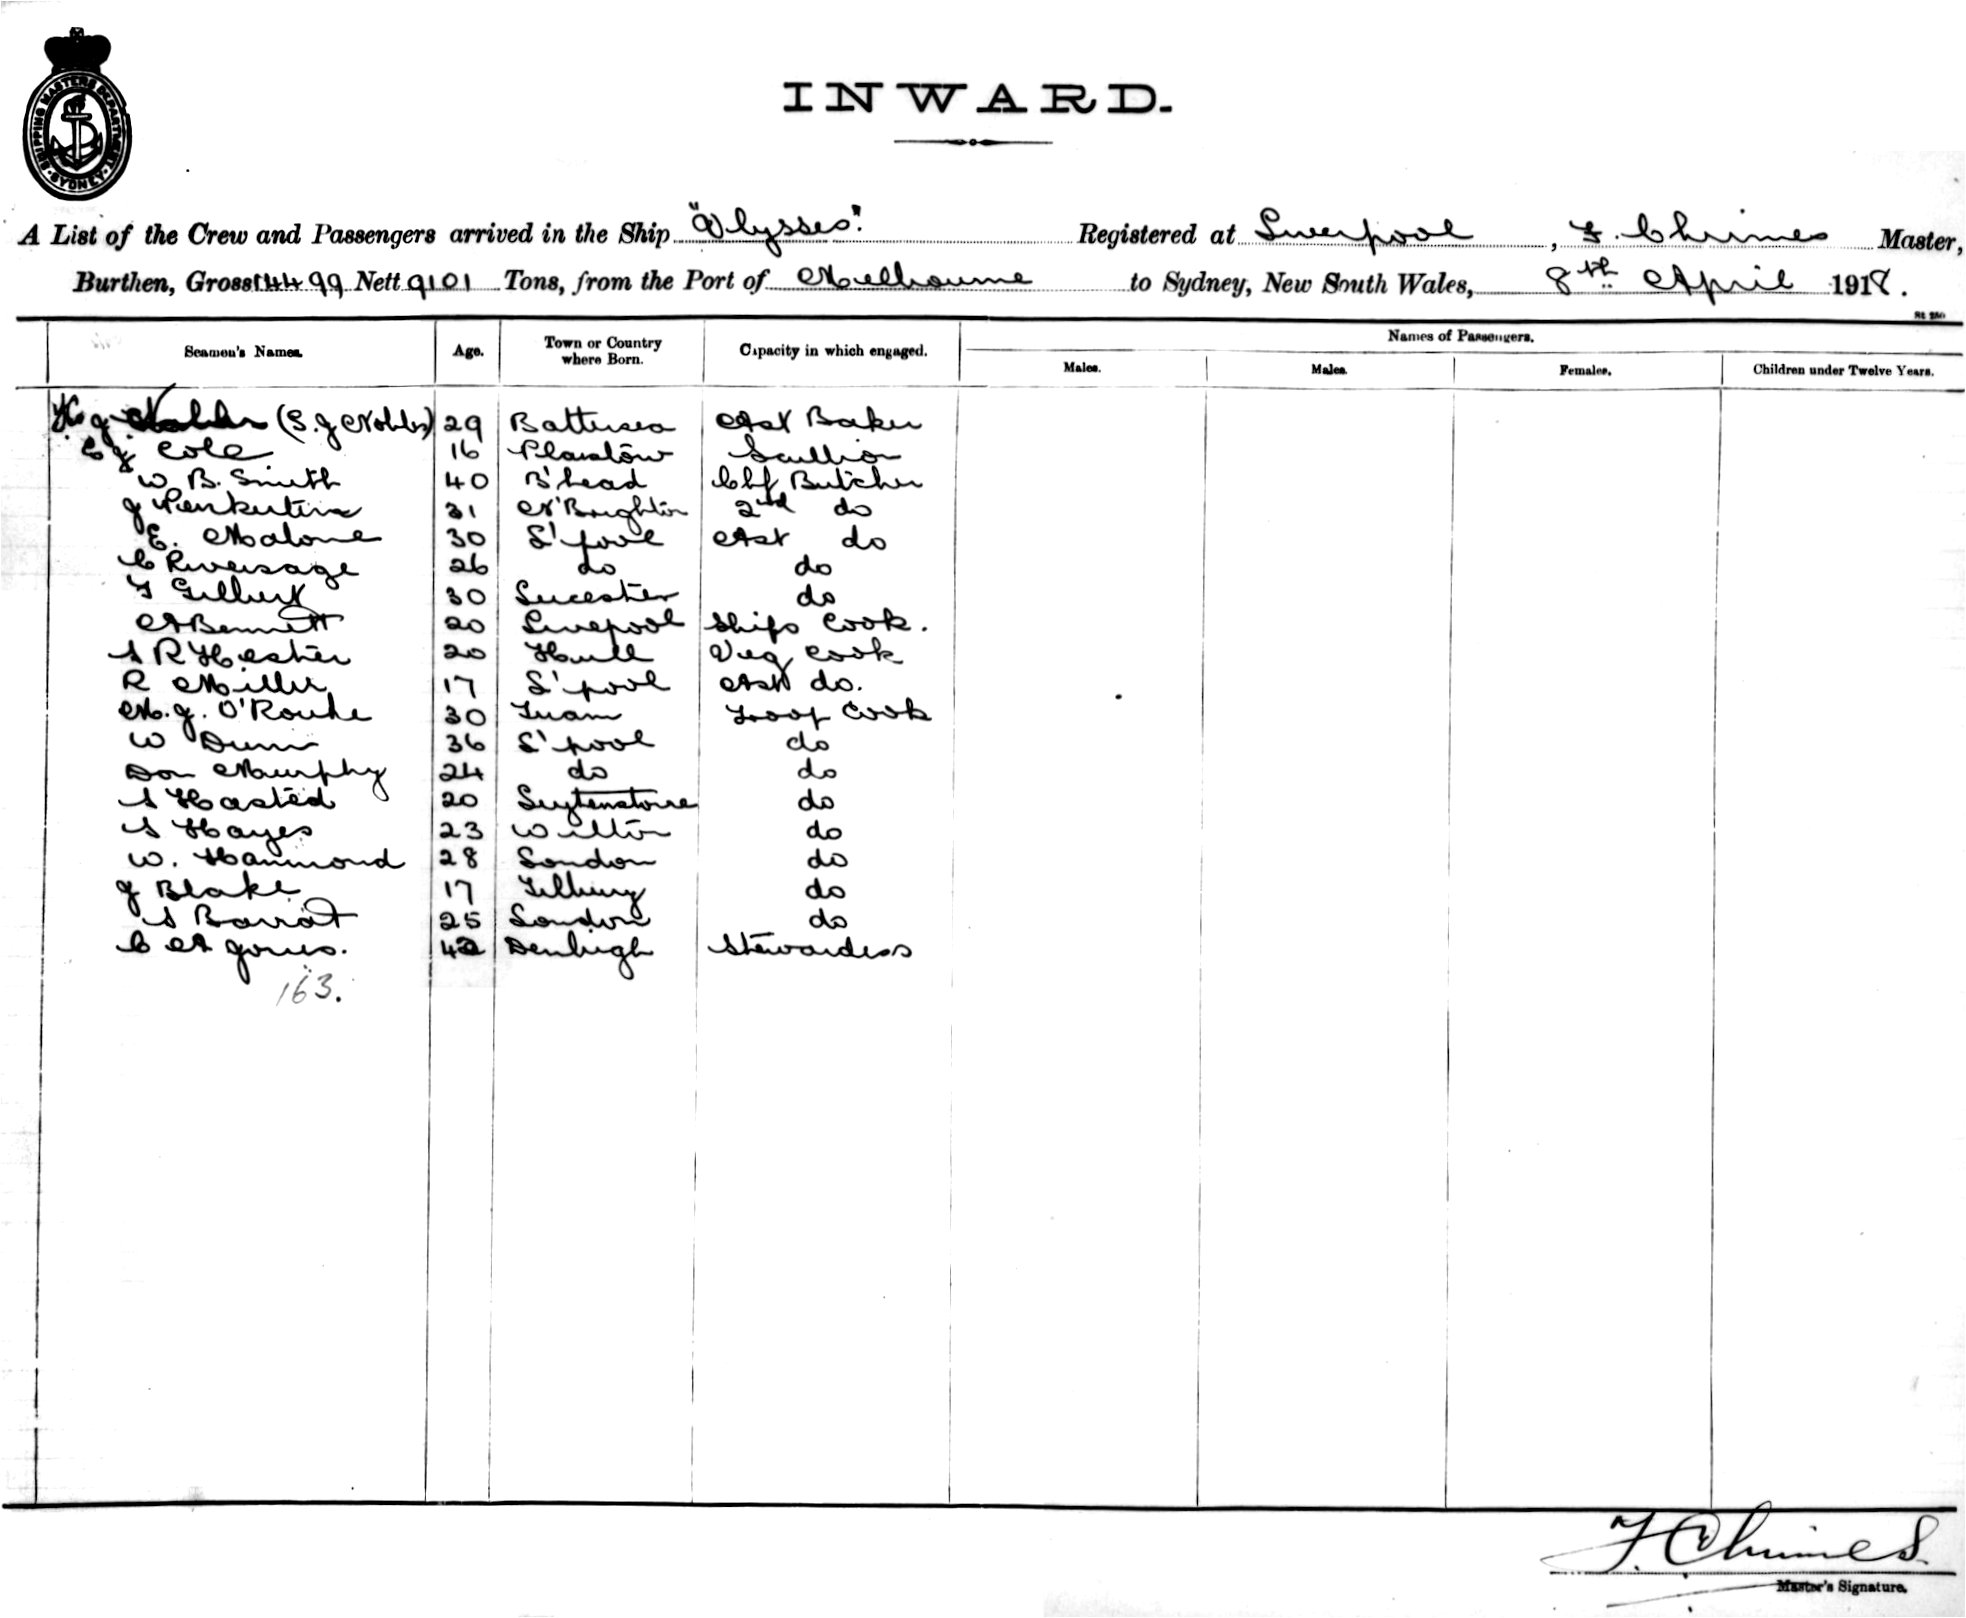 SHIPPING MASTERS DEPARTMENT SYDNEY
INWARD.
A List of the Crew and Passengers arrived in the Ship "Ulysses". Registered at Liverpool, F. Chrimes Master,
Burthen, Gross 14499 Nett 9101 Tons, from the Port of Melbourne to Sydney, New South Wales, 8th April 1918.
Seamen's Names. Age. Town or Country where Born. Capacity in which engaged. Names of Passengers.
Males. Males. Females. Children under Twelve Years.
(S. J Nobbs) 29 Battersea Ast Baker
C J Cole 16 Plaistow Scullion
W B. Smith 40 B'head Chf Butcher
J 31 N'Brighton 2nd do
E. Malone 30 L'pool Ast do
C Riversage 26 do do
F Gilbert 30 Leicester do
A Bennett 20 Liverpool Ships Cook.
S R Hester 20 Hull Veg Cook
R Miller 17 L'pool Ast do.
M. J. O'Rourke 30 Tuam Troop Cook
W Dunn 36 L'pool do
Dan Murphy 24 do do
S Hasted 20 Leytonstone do
S Hayes 23 Wilton do
W. Hammond 28 London do
J Blake 17 Tilbury do
S Barrat 25 London do
C A Jones. 42 Denbigh Stewardess
163.
F. Chrimes.
Master's Signature.